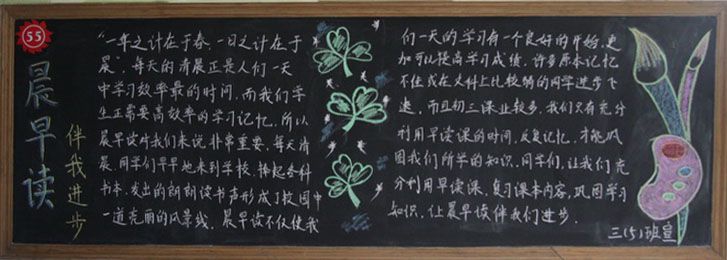 55
晨早读
伴我进步
"一年之计在于春,一日之计在于
晨",每天的清晨正是人们一天
中学习效率最的时间,而我们学
生正需要高效率的学习记忆,所以
晨早读对我们来说非常重要,每天清
晨,同学们早早地来到学校,捧起各科
书本,发出的朗朗读书声形成了校园中
一道亮丽的风景线,晨早读不仅使我
们一天的学习有一个良好的开始,更
加可以提高学习成绩,许多原本记忆
不佳或在文科上比较弱的同学进步飞
速,而且初三课业较多,我们只有充分
利用早读课的时间,反复记忆,才能巩
固我们所学的知识,同学们,让我们充
分利用早读课,复习课本内容,巩固学习
知识,让晨早读伴我们进步.
三(5)班宣